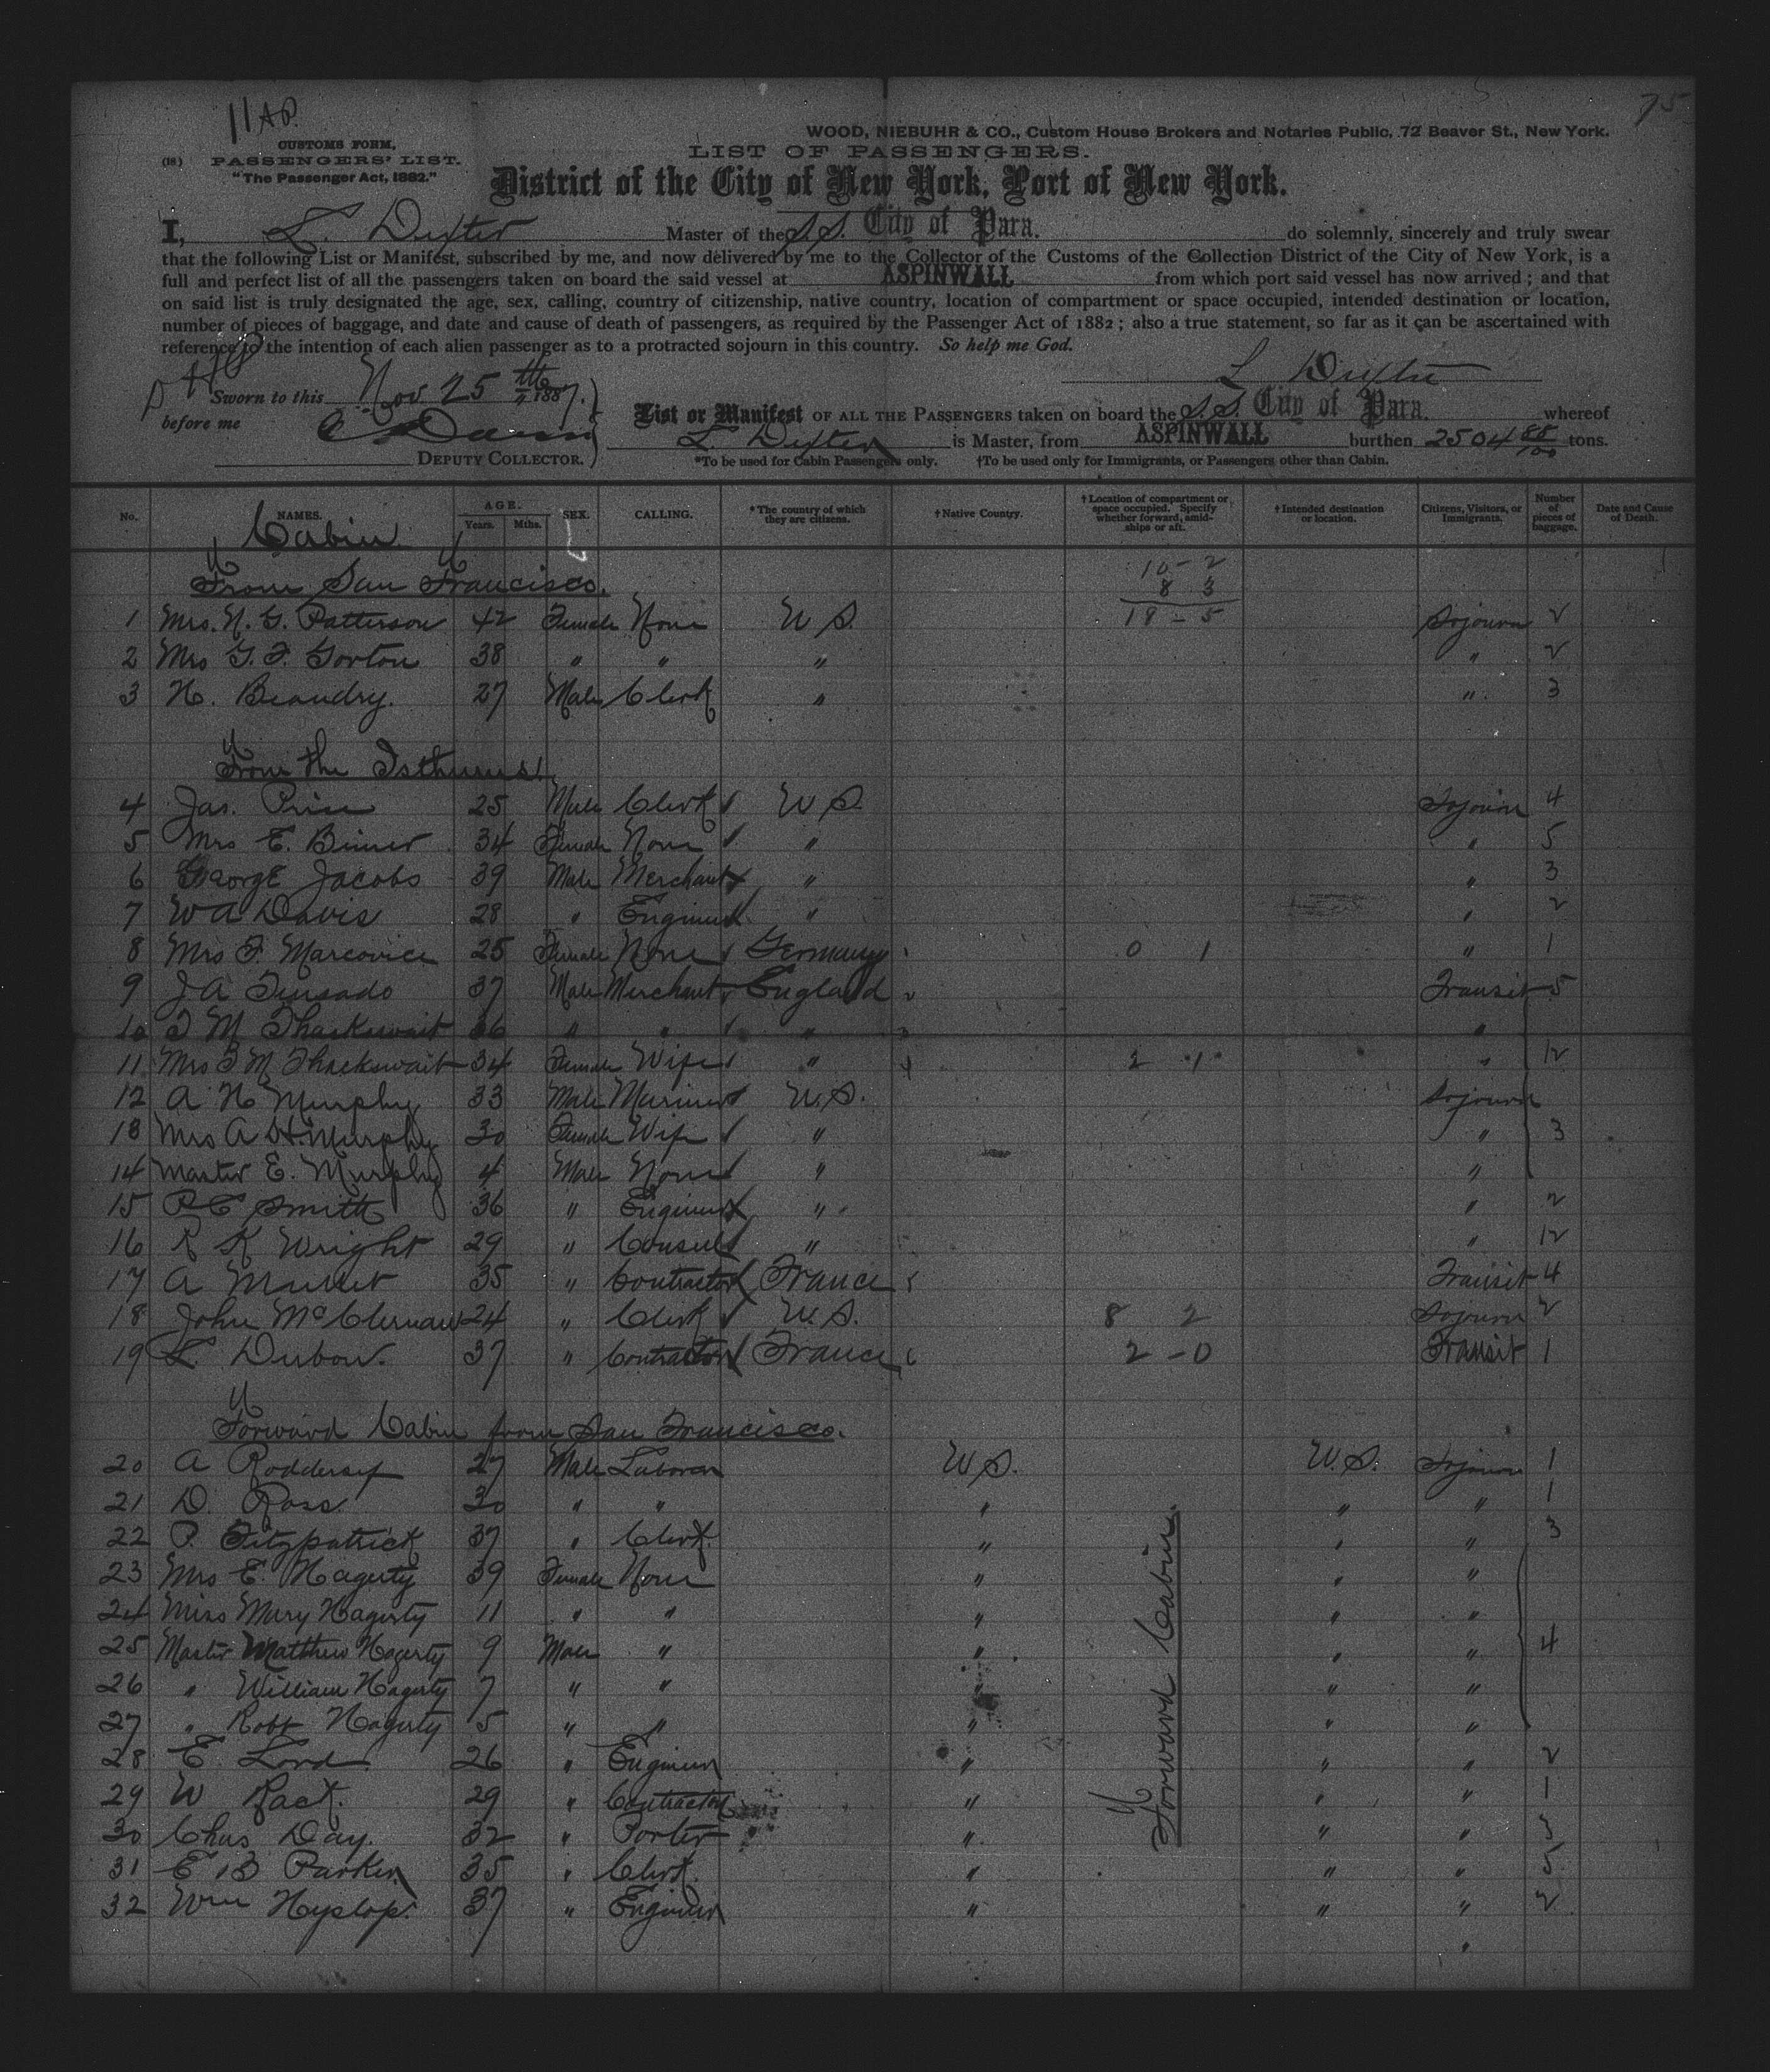 11 AP.
75
WOOD, NIEBUHR & CO., Custom House Brokers and Notaries Public, 72 Beaver St., New York.
CUSTOMS FORM,
(18) PASSENGERS' LIST.
"The Passenger Act, 1882."
LIST OF PASSENGERS.
District of the City of New York, Port of New York.
I, L. Dexter Master of the S.S. City of Para. do solemnly, sincerely and truly swear
that the following List or Manifest, subscribed by me, and now delivered by me to the Collector of the Customs of the Collection District of the City of New York, is a
full and perfect list of all the passengers taken on board the said vessel at ASPINWALL from which port said vessel has now arrived; and that
on said list is truly designated the age, sex, calling, country of citizenship, native country, location of compartment or space occupied, intended destination or location,
number of pieces of baggage, and date and cause of death of passengers, as required by the Passenger Act of 1882; also a true statement, so far as it can be ascertained with
reference to the intention of each alien passenger as to a protracted sojourn in this country. So help me God.
L Dexter
Sworn to this Nov 25th 1887.
before me
DEPUTY COLLECTOR.
List or Manifest OF ALL THE PASSENGERS taken on board the S.S. City of Para. whereof
L Dexter is Master, from ASPINWALL burthen 2504 88/100 tons.
*To be used for Cabin Passengers only. †To be used only for Immigrants, or Passengers other than Cabin.
No. NAMES. AGE. Years. Mths. SEX. CALLING. *The country of which they are citizens. †Native Country. †Location of compartment or space occupied. Specify whether forward, amidships or aft. †Intended destination or location. Citizens, Visitors, or Immigrants. Number of pieces of baggage. Date and Cause of Death.
Cabin.
From San Francisco.
10 - 2
8 3
18 - 5
1 Mrs. N. G. Patterson 42 Female None U S. Sojourn 2
2 Mrs G. F. Gorton 38 " " " " 2
3 H. Beaudry. 27 Male Clerk " " 3
From the Isthmus
4 Jas. Price 25 Male Clerk U S. Sojourn 4
5 Mrs E. 34 Female None " " 5
6 George Jacobs 39 Male Merchant " " 3
7 W A Davis 28 " Engineer " " 2
8 Mrs F. Marcovice 25 Female None Germany 0 1 " 1
9 J A 37 Male Merchant England Transit 5
10 T M Thackswait 36 " " " "
11 Mrs T M Thackswait 34 Female Wife " 2 1 " 12
12 A H Murphy 33 Male Mariner U.S. Sojourn
13 Mrs A H Murphy 30 Female Wife " " 3
14 Master E. Murphy 4 Male None " "
15 P C Smith 36 " Engineer " " 2
16 R K Wright 29 " Consul " " 12
17 A 35 " Contractor France Transit 4
18 John McClernan 24 " Clerk U.S. 8 2 Sojourn 2
19 L. Dubow. 37 " Contractor France 2 - 0 Transit 1
Forward Cabin from San Francisco.
20 A 27 Male Laborer U S. U.S. Sojourn 1
21 D. Ross 30 " " " " " 1
22 P. Fitzpatrick 37 " Clerk. " " " 3
23 Mrs E. Hagerty 39 Female None " " "
24 Miss Mary Hagerty 11 " " " " "
25 Master Matthew Hagerty 9 Male " " " " 4
26 " William Hagerty 7 " " " " "
27 " Robt Hagerty 5 " " " " "
28 E. Lord 26 " Engineer " " " 2
29 W Rack. 29 " Contractor " " " 1
30 Chas Day. 32 " Porter " " "
31 E B Parker 35 " Clerk " " " 5
32 Wm Hyslop. 37 " Engineer " " " 2
Forward Cabin.